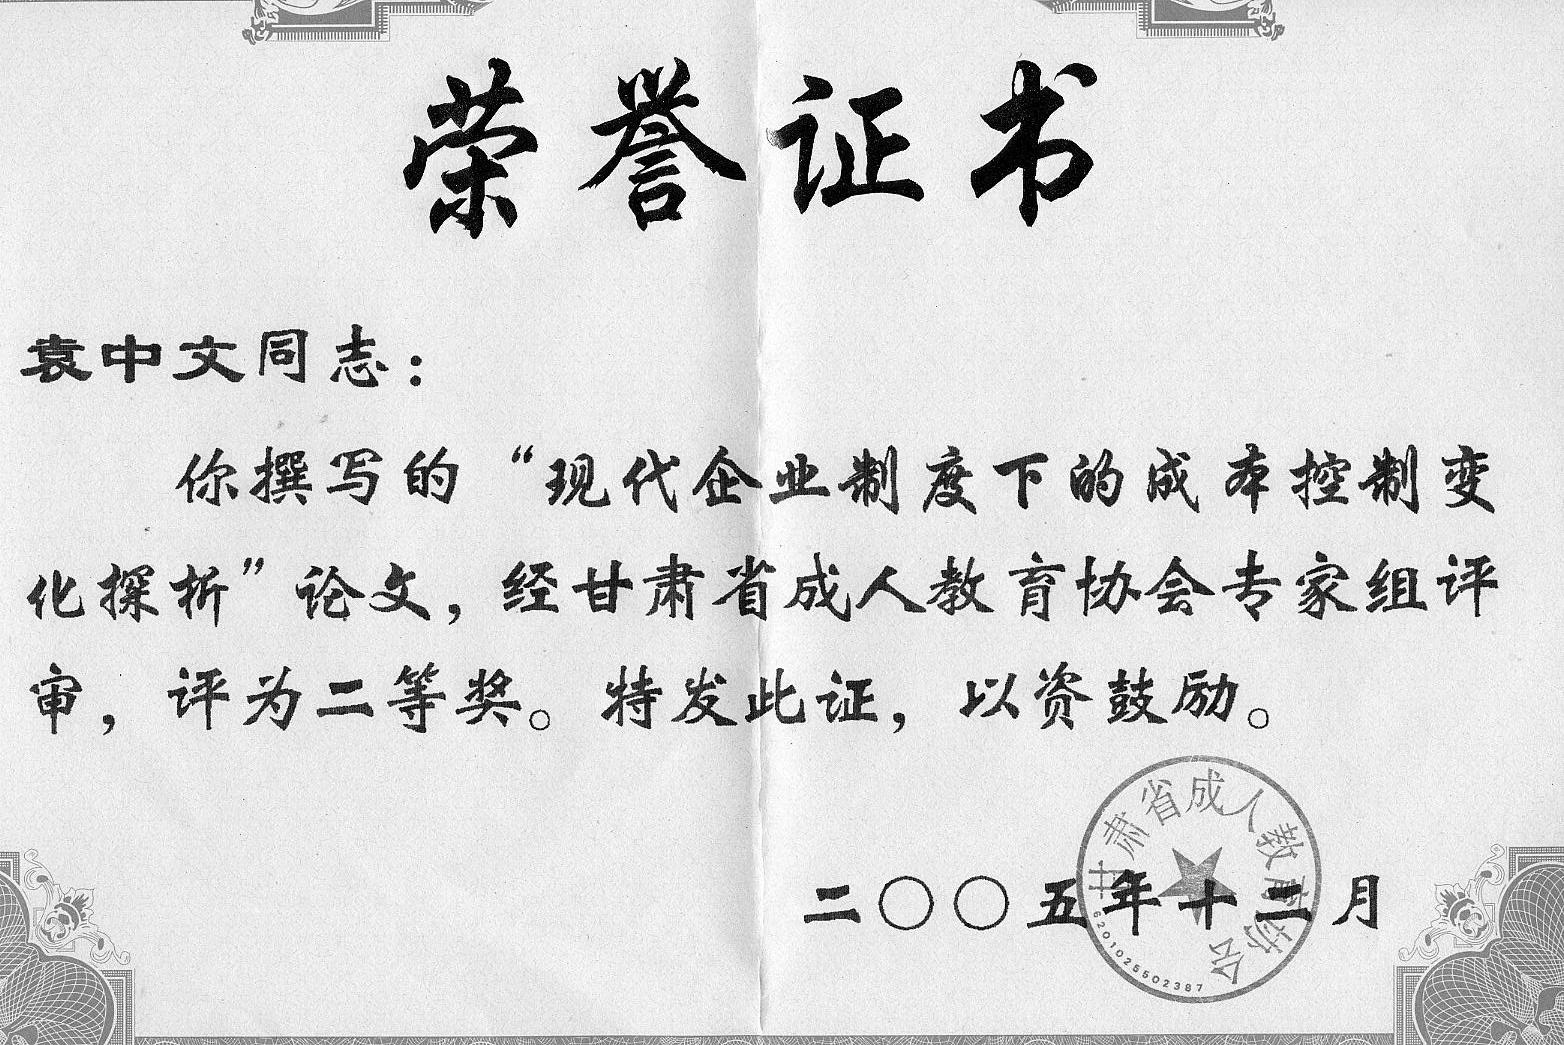 荣誉证书
袁中文同志：
你撰写的“现代企业制度下的成本控制变
化探析”论文，经甘肃省成人教育协会专家组评
审，评为二等奖。特发此证，以资鼓励。
甘肃省成人教育协会
6201025502387
二〇〇五年十二月